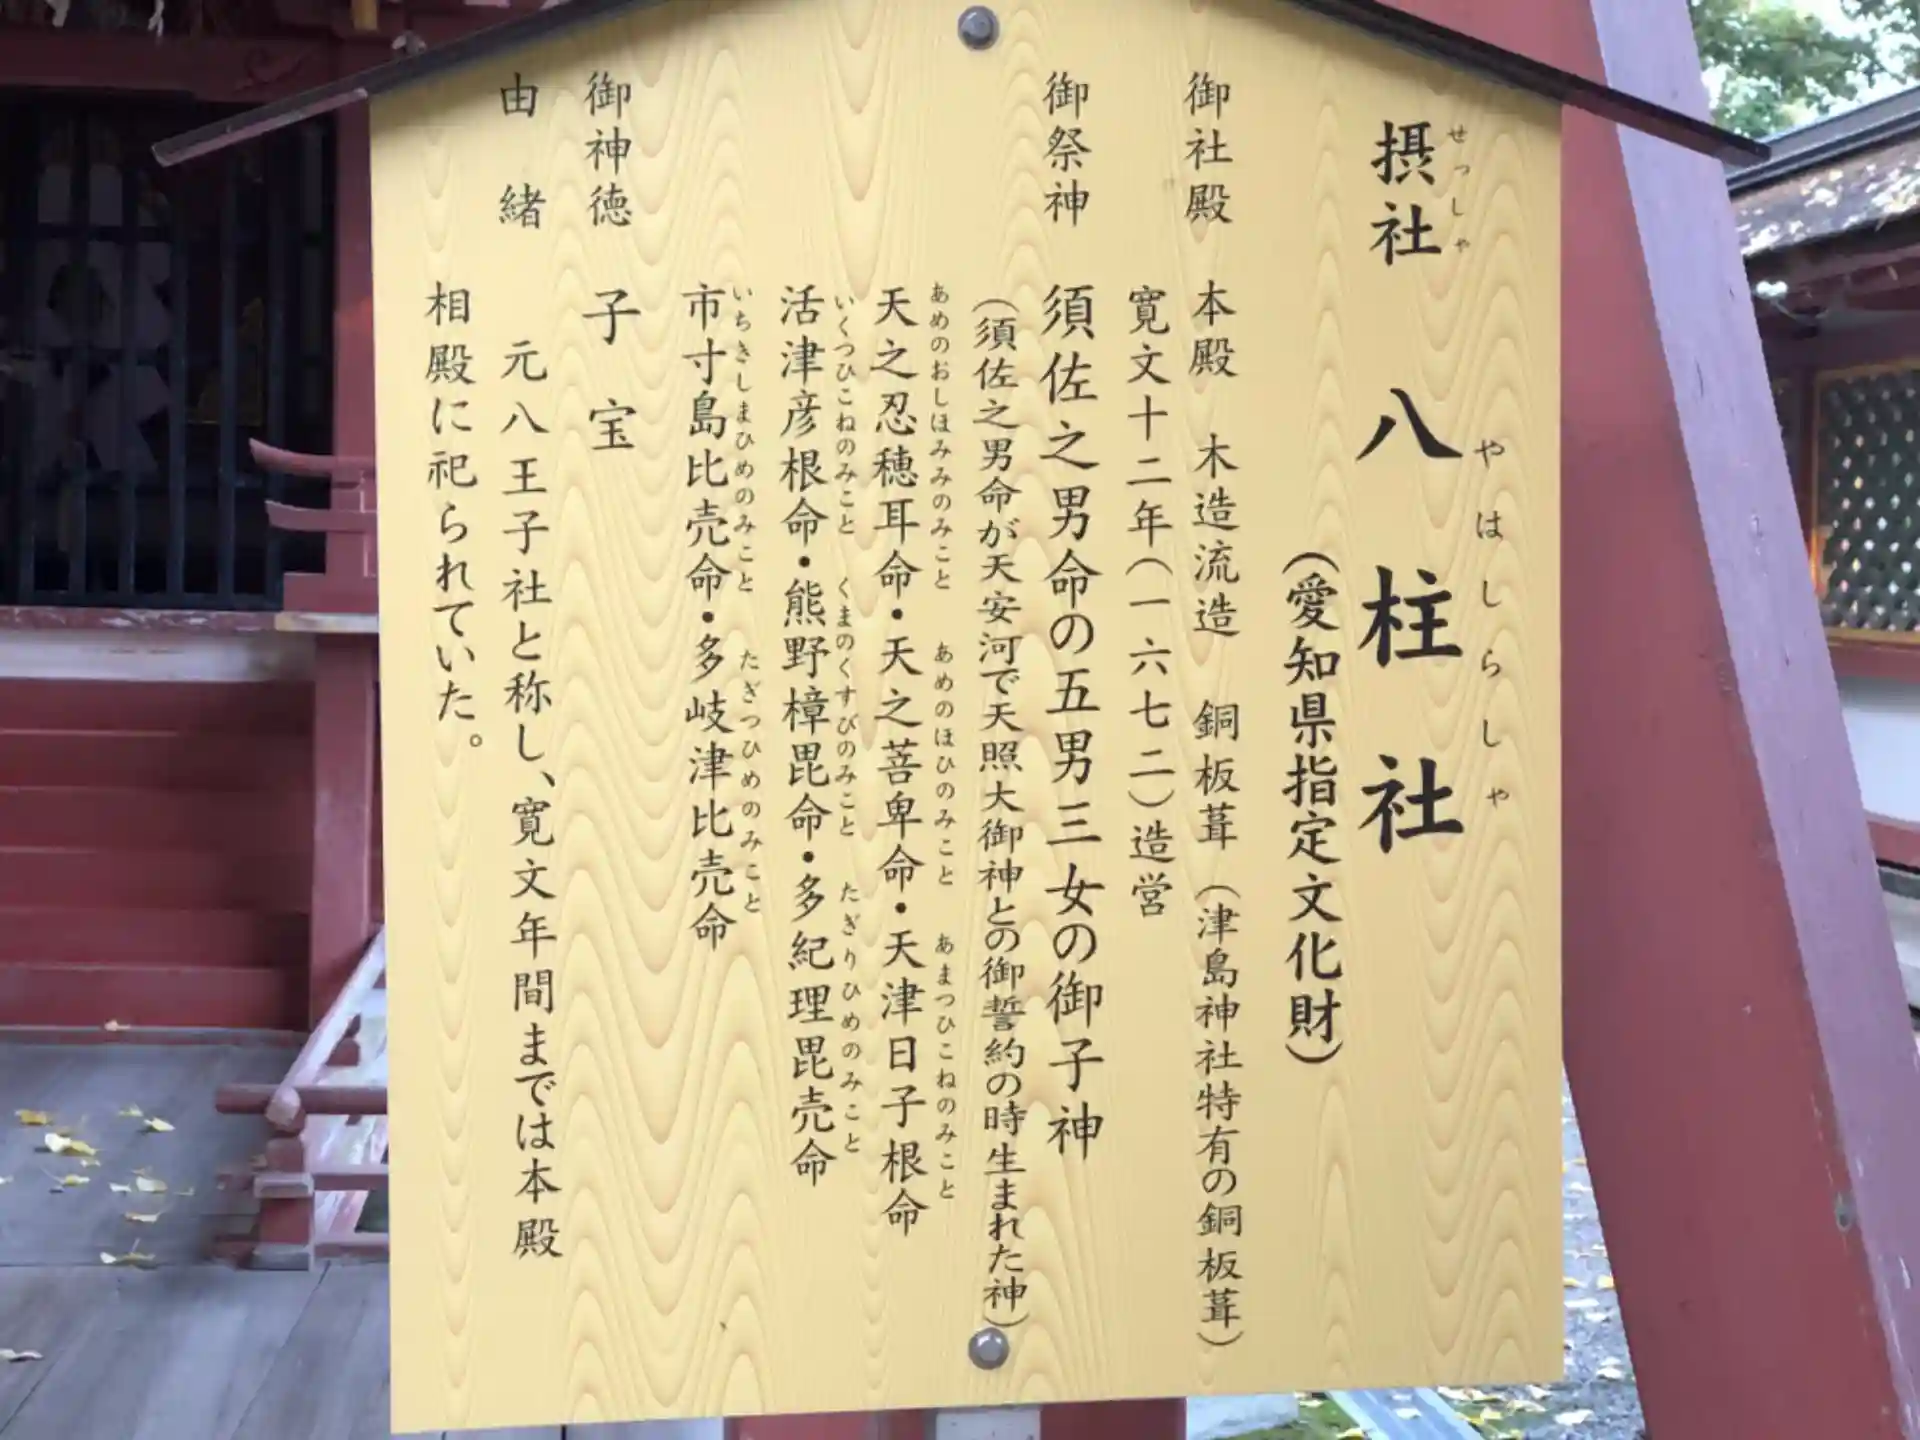 摂社 八柱社
せっしゃ やはしらしゃ
(愛知県指定文化財)
御社殿 本殿 木造流造 銅板葺 (津島神社特有の銅板葺)
寛文十二年(一六七二)造営
御祭神 須佐之男命の五男三女の御子神
(須佐之男命が天安河で天照大御神との御誓約の時生まれた神)
あめのおしほみみのみこと あめのほひのみこと あまつひこねのみこと
天之忍穂耳命・天之菩卑命・天津日子根命
いくつひこねのみこと くまのくすびのみこと たぎりひめのみこと
活津彦根命・熊野樟毘命・多紀理毘売命
いちきしまひめのみこと たぎつひめのみこと
市寸島比売命・多岐津比売命
御神徳 子宝
由緒 元八王子社と称し、寛文年間までは本殿
相殿に祀られていた。